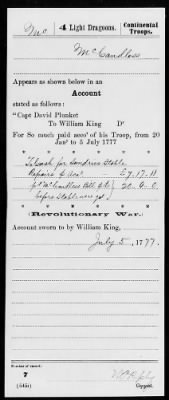 Mc | 4 Light Dragoons. | Continental Troops.
McCandless
Appears as shown below in an
Account
stated as follows:
"Capt David Plunket
To William King Dr
For So much paid acco't of his Troop, from 20
Jan'y to 5 July 1777
* * * * * * *
To Cash for Sundries Stable
Repairs £ 7.17.11
McCandless Bill 20.0.0
before Stable
* * * * * * *
Revolutionary War.
Account sworn to by William King,
July 5, 1777.
Number of record:
7
Copyist.